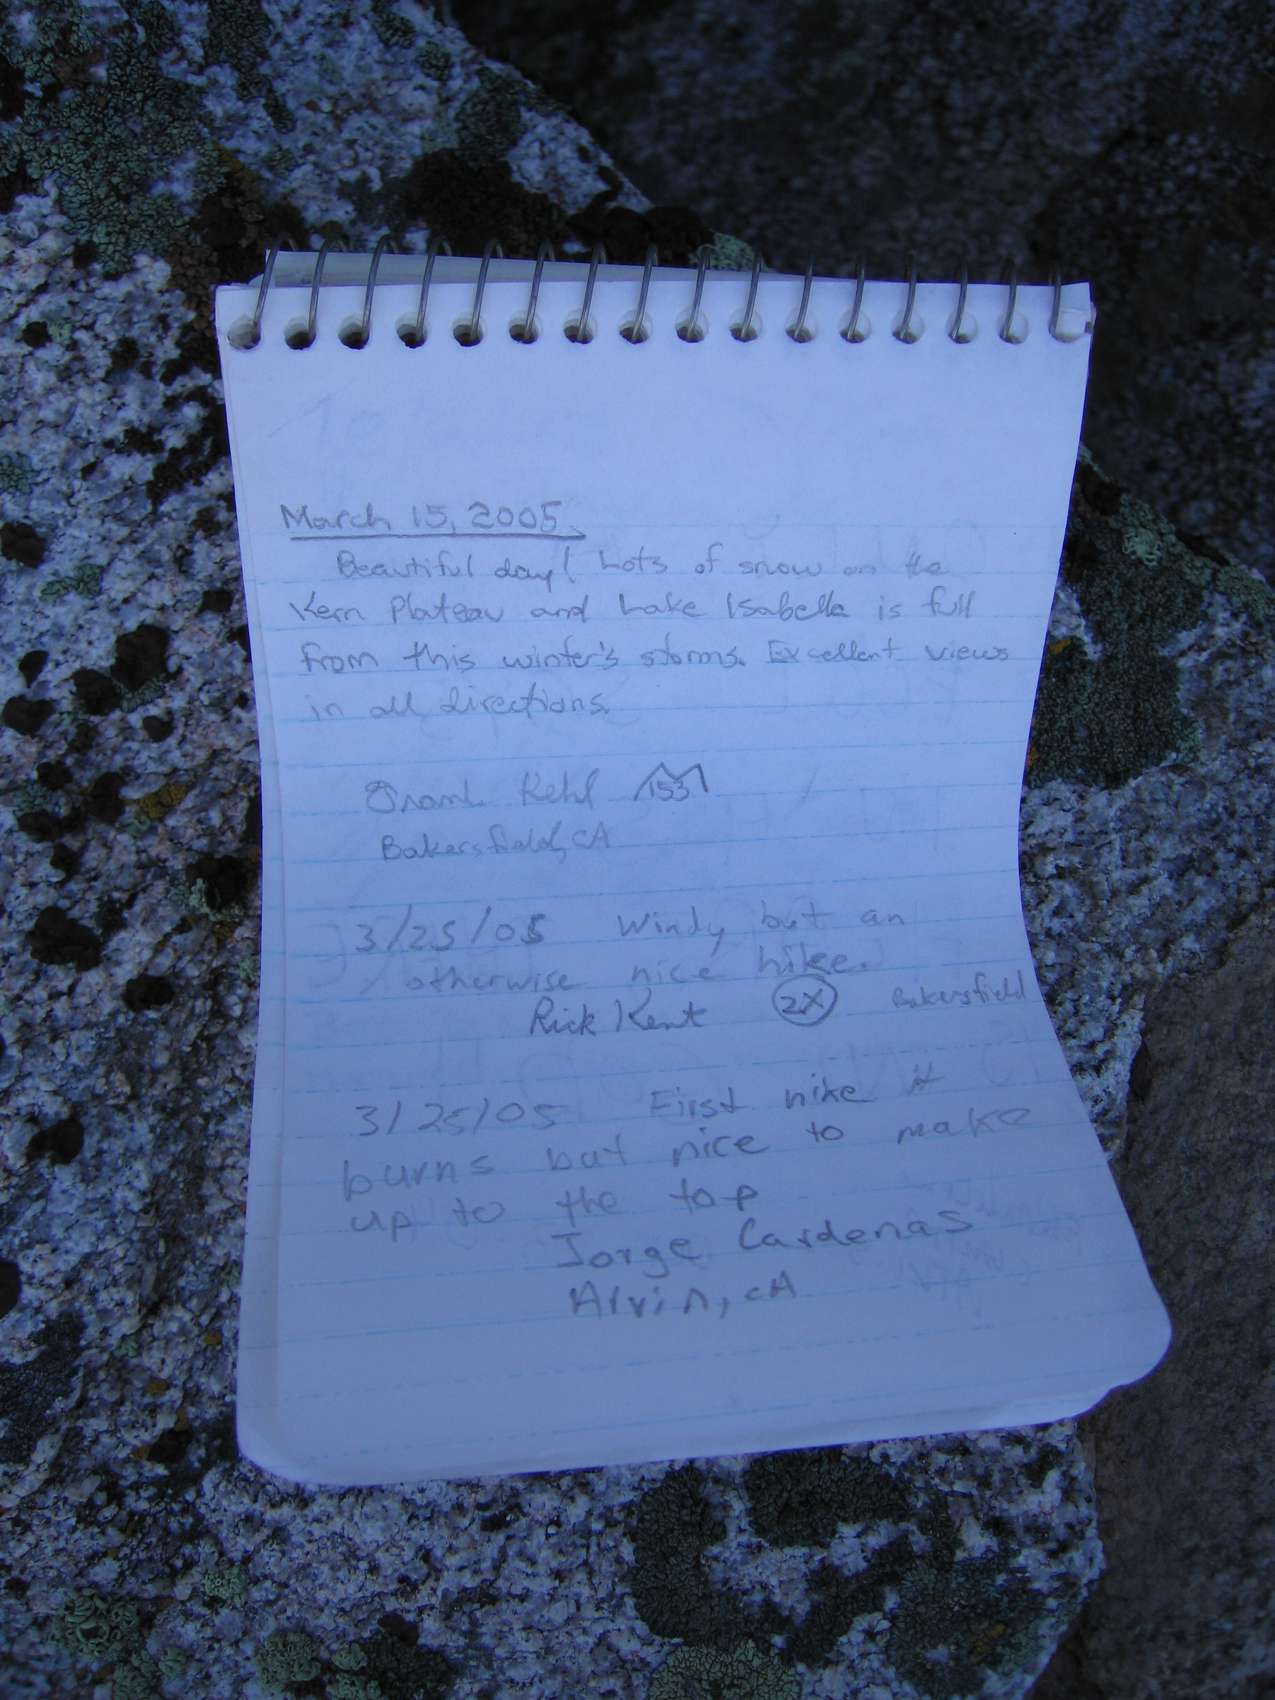 March 15, 2005
Beautiful day! Lots of snow on the
Kern Plateau and Lake Isabella is full
from this winter's storms. Excellent views
in all directions.
Kehl 153
Bakersfield, CA
3/25/05 Windy but an
otherwise nice hike.
Rick Kent 2X Bakersfield
3/25/05 First hike it
burns but nice to make
up to the top
Jorge Cardenas
Arvin, CA